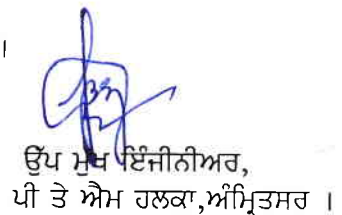 ।
ਉੱਪ ਮੁੱਖ ਇੰਜੀਨੀਅਰ,
ਪੀ ਤੇ ਐਮ ਹਲਕਾ,ਅੰਮ੍ਰਿਤਸਰ ।